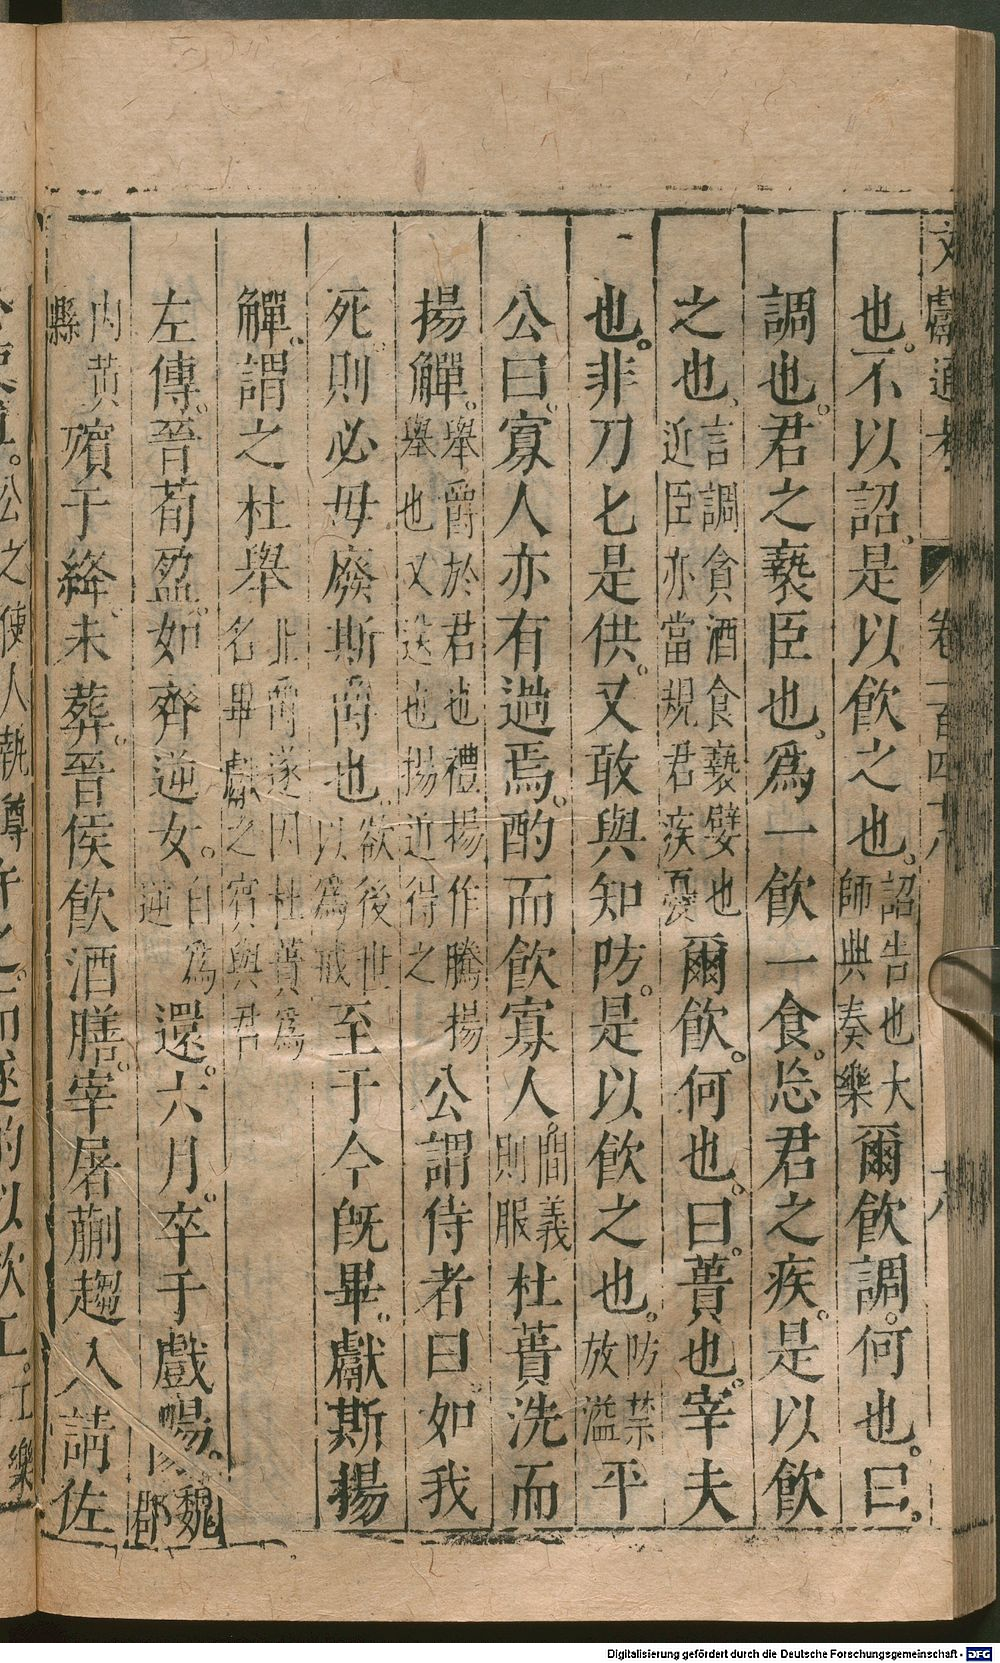 文獻通考 卷一百四十八 十八
也。不以詔。是以飲之也。詔告也大師典奏樂爾飲調。何也。曰。
調也。君之褻臣也。爲一飲一食。忘君之疾。是以飲
之也。言調貪酒食褻嬖也近臣亦當規君疾憂爾飲。何也。曰。蕢也。宰夫
也。非刀匕是供。又敢與知防。是以飲之也。防禁放溢平
公曰。寡人亦有過焉。酌而飲寡人。聞義則服杜蕢洗而
揚觶。舉爵於君也禮揚作騰揚舉也又送也揚近得之公謂侍者曰。如我
死。則必毋廢斯爵也。欲後世以爲戒至于今旣畢。獻斯揚
觶。謂之杜舉此爵遂因杜蕢爲名畢獻之賓與君
左傳。晉荀盈。如齊逆女。自爲逆還。六月。卒于戲陽。魏郡
内黄縣殯于絳。未葬。晉侯飲酒。膳。宰屠蒯趨入請佐
公之使人執尊許之。而遂酌以飲工。工樂
Digitalisierung gefördert durch die Deutsche Forschungsgemeinschaft - DFG